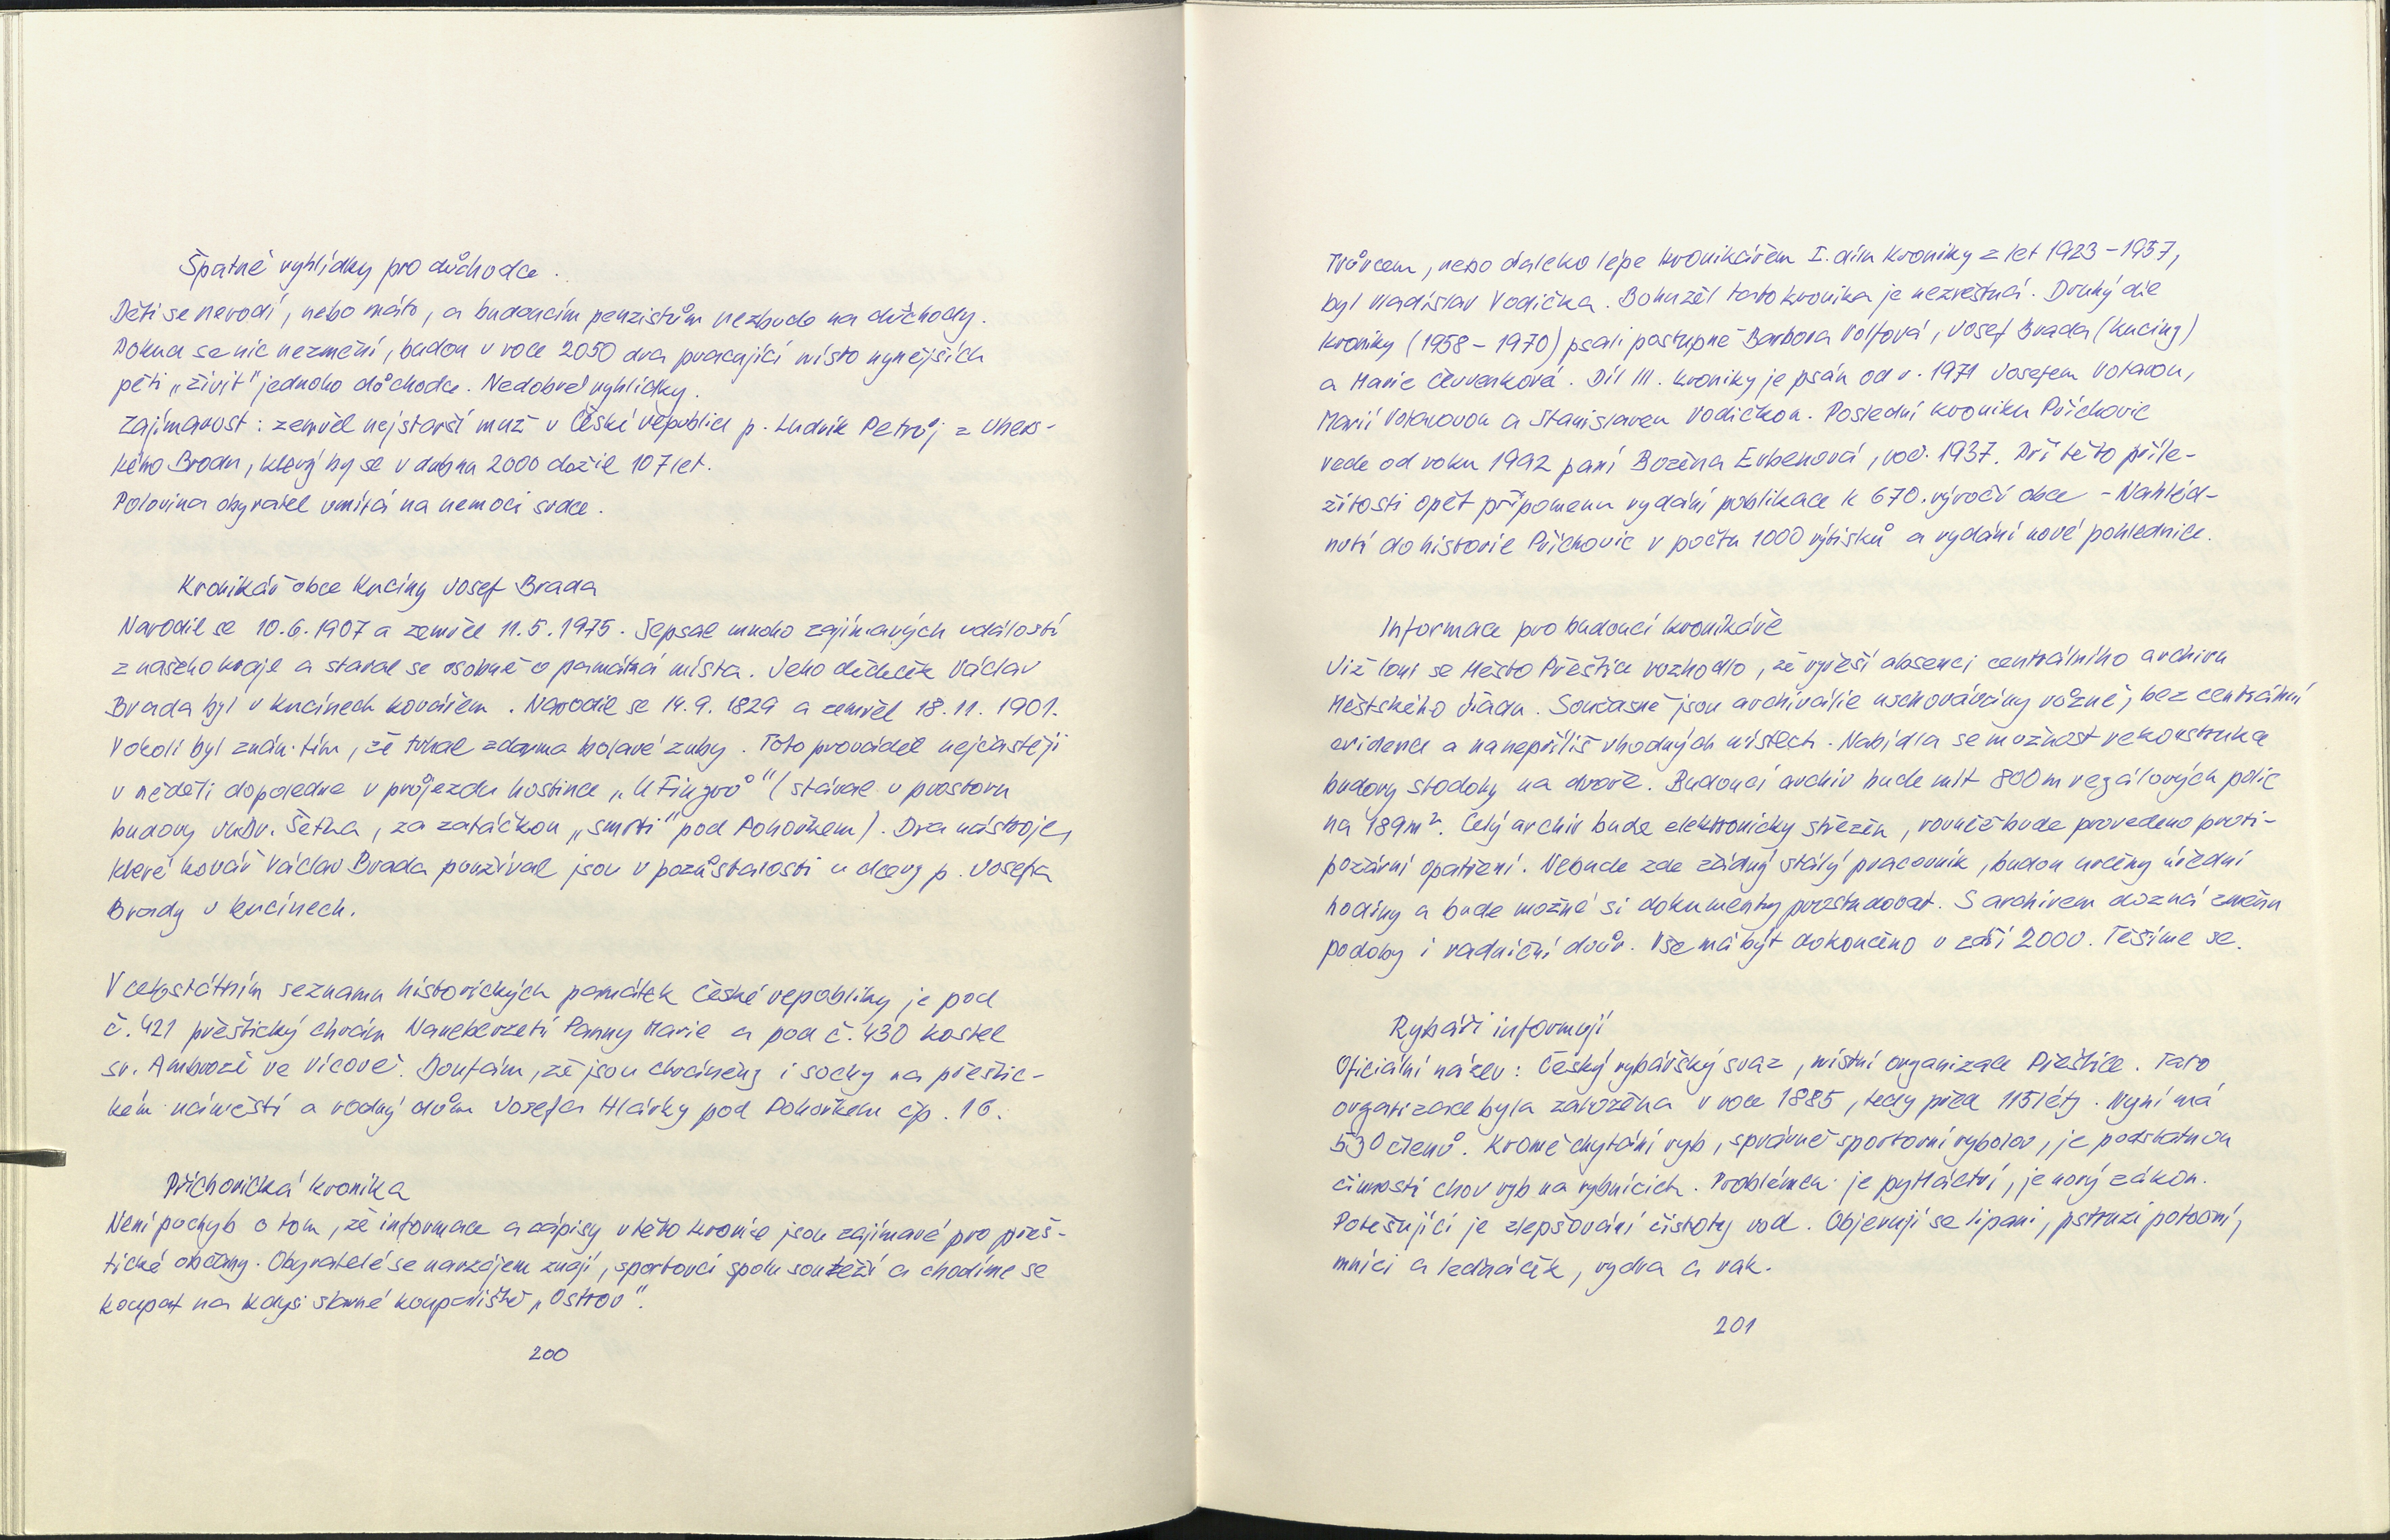 Špatné vyhlídky pro důchodce.
Děti se nerodí, nebo málo, a budoucím penzistům nezbude na důchody.
Pokud se nic nezmění, budou v roce 2050 dva pracující místo nynějších
pěti „živit" jednoho důchodce. Nedobré vyhlídky.
Zajímavost: zemřel nejstarší muž v České republice p. Ludvík Petrůj z Uhers-
kého Brodu, který by se v dubnu 2000 dožil 107 let.
Polovina obyvatel umírá na nemoci srdce.
Kronikář obce Kucíny Josef Brada
Narodil se 10.6.1907 a zemřel 11.5.1975. Sepsal mnoho zajímavých událostí
z našeho kraje a staral se osobně o památná místa. Jeho dědeček Václav
Brada byl v Kucínech kovářem. Narodil se 14.9.1829 a zemřel 18.11.1901.
V okolí byl znám tím, že trhal zdarma bolavé zuby. Toto prováděl nejčastěji
v neděli dopoledne v průjezdu hostince „U Fingrů" (stával v prostoru
budovy UNV. Šetka, za zatáčkou „smrti" pod Pohořkem). Dva nástroje,
které kovář Václav Brada používal jsou v pozůstalosti u dcery p. Josefa
Brady v Kucínech.
V celostátním seznamu historických památek České republiky je pod
č. 421 přeštický chrám Nanebevzetí Panny Marie a pod č. 430 kostel
sv. Ambrože ve Vícově. Doufám, že jsou chráněny i sochy na přeštic-
kém náměstí a rodný dům Josefa Hlávky pod Pohořkem čp. 16.
Příchovická kronika
Není pochyb o tom, že informace a zápisy v této kronice jsou zajímavé pro přeš-
tické občany. Obyvatelé se navzájem znají, sportovci spolu soutěží a chodíme se
koupat na kdysi slavné koupaliště „Ostrov".
200
Tvůrcem, nebo daleko lépe kronikářem I. dílu kroniky z let 1923-1957,
byl Vladislav Vodička. Bohužel tato kronika je nezvěstná. Druhý díl
kroniky (1958-1970) psali postupně Barbora Volfová, Josef Brada (Kuciny)
a Marie Červenková. Díl III. kroniky je psán od r. 1971 Josefem Votavou,
Marií Votavovou a Stanislavem Vodičkou. Poslední kroniku Příchovic
vede od roku 1992 paní Božena Erbenová, roč. 1937. Při této příle-
žitosti opět připomenu vydání publikace k 670. výročí obce - Nahléd-
nutí do historie Příchovic v počtu 1000 výtisků a vydání nové pohlednice.
Informace pro budoucí kronikáře
Již loni se Město Přeštice rozhodlo, že vyřeší absenci centrálního archivu
Městského úřadu. Současně jsou archiválie uschovávány různě, bez centrální
evidence a na nepříliš vhodných místech. Nabídla se možnost rekonstrukce
budovy stodoly na dvoře. Budoucí archiv bude mít 800 m regálových polic
na 189 m². Celý archiv bude elektronicky střežen, rovněž bude provedeno proti-
požární opatření. Nebude zde žádný stálý pracovník, budou určeny úřední
hodiny a bude možné si dokumenty prostudovat. S archivem dozná změnu
podoby i radniční dvůr. Vše má být dokončeno v září 2000. Těšíme se.
Rybáři informují
Oficiální název: Český rybářský svaz, místní organizace Přeštice. Tato
organizace byla založena v roce 1885, tedy před 115 léty. Nyní má
530 členů. Kromě chytání ryb, správně sportovní rybolov, je podstatnou
činností chov ryb na rybnících. Problémem je pytláctví, je nový zákon.
Potěšující je zlepšování čistoty vod. Objevují se lipani, pstruzi potoční,
mníci a ledňáček, vydra a rak.
201